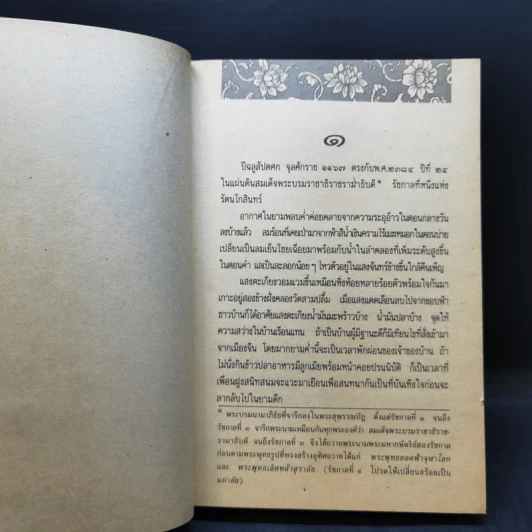 ๑
ปีฉลูสัปตศก จุลศักราช ๑๑๖๗ ตรงกับพ.ศ.๒๓๔๘ ปีที่ ๒๔
ในแผ่นดินสมเด็จพระบรมราชาธิราชรามาธิบดี* รัชกาลที่หนึ่งแห่ง
รัตนโกสินทร์
อากาศในยามพลบค่ำค่อยคลายจากความระอุอ้าวในตอนกลางวัน
ลงบ้างแล้ว ลมร้อนที่เคยเป่ามาจากฟ้าสีน้ำเงินครามไร้เมฆหมอกในตอนบ่าย
เปลี่ยนเป็นลมเย็นโชยเฉื่อยมาพร้อมกับน้ำในลำคลองที่เพิ่มระดับสูงขึ้น
ในตอนค่ำ แลเป็นละลอกน้อยๆ ไหวตัวอยู่ในแสงจันทร์ข้างขึ้นใกล้คืนเพ็ญ
แสงตะเกียงวอมแวมขึ้นเหมือนหิ่งห้อยหลายร้อยตัวพร้อมใจกันมา
เกาะอยู่สองข้างฝั่งคลองวัดสามปลื้ม เมื่อแสงแดดเลือนลับไปจากขอบฟ้า
ชาวบ้านก็ได้อาศัยแสงตะเกียงน้ำมันมะพร้าวบ้าง น้ำมันปลาบ้าง จุดให้
ความสว่างในบ้านเรือนแทน ถ้าเป็นบ้านผู้มีฐานะดีก็มีเทียนไขที่สั่งเข้ามา
จากเมืองจีน โดยมากยามค่ำนี้จะเป็นเวลาพักผ่อนของเจ้าของบ้าน ถ้า
ไม่นั่งกินข้าวปลาอาหารมีลูกเมียพร้อมหน้าคอยปรนนิบัติ ก็เป็นเวลาที่
เพื่อนฝูงสนิทสนมจะแวะมาเยือนเพื่อสนทนากันเป็นที่บันเทิงใจก่อนจะ
ลากลับไปในยามดึก
* พระบรมนามาภิไธยที่จารึกลงในพระสุพรรณบัฏ ตั้งแต่รัชกาลที่ ๑ จนถึง
รัชกาลที่ ๓ จารึกพระนามเหมือนกันทุกพระองค์ว่า สมเด็จพระบรมราชาธิราช-
รามาธิบดี จนถึงรัชกาลที่ ๓ จึงได้ถวายพระนามพระมหากษัตริย์สองรัชกาล
ก่อนตามพระพุทธรูปที่ทรงสร้างอุทิศถวายได้แก่ พระพุทธยอดฟ้าจุฬาโลก
และ พระพุทธเลิศหล้าสุราลัย (รัชกาลที่ ๔ โปรดให้เปลี่ยนสร้อยเป็น
นภาลัย)